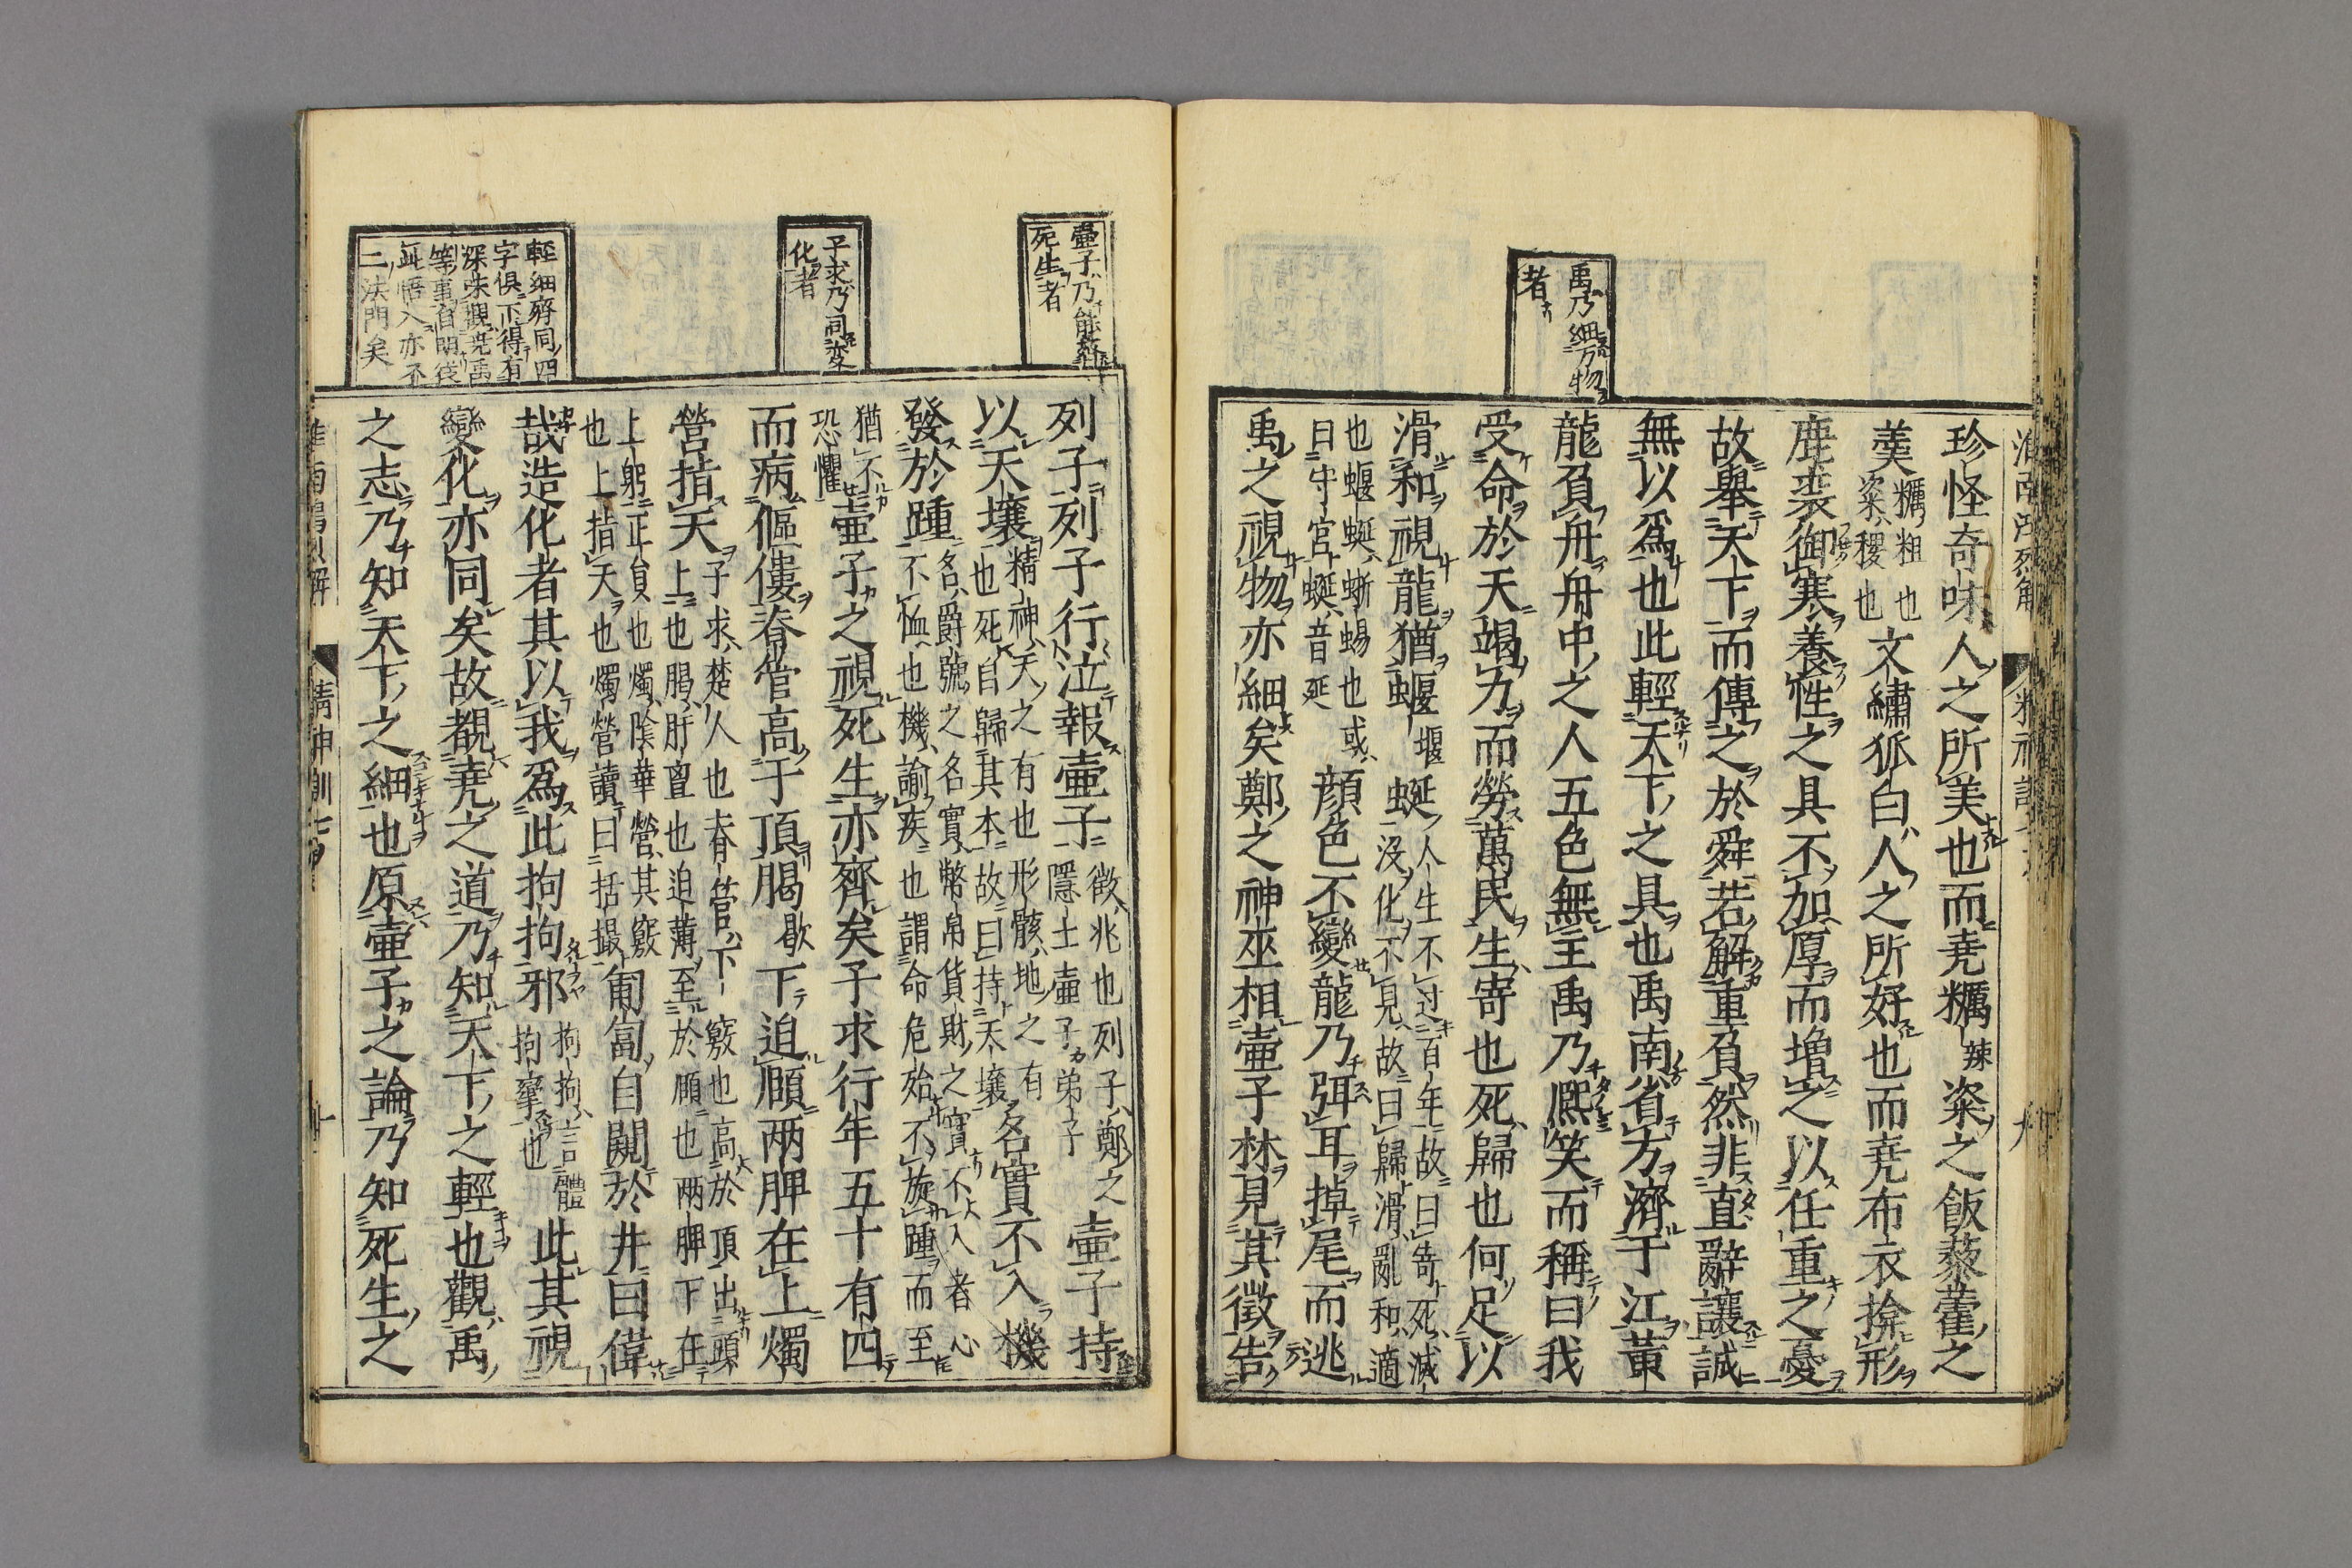 禹乃細万物
者
珍怪奇味人之所美也而堯糲辣粢之飯藜藿之
羹糲粗也粢稷也文繡狐白人之所好也而堯布衣揜形
鹿裘御寒養性之具不加厚而增之以任重之憂
故舉天下而傳之於舜若解重負然非直辭讓誠
無以爲也此輕天下之具也禹南省方濟于江黃
龍負舟舟中之人五色無主禹乃熈笑而稱曰我
受命於天竭力而勞萬民生寄也死歸也何足以
滑和視龍猶蝘堰蜒人生不过百年故曰寄死滅沒化不見故曰歸滑亂和適
也蝘蜒蜥蜴也或曰守宮蜒音延顏色不變龍乃弭耳掉尾而逃
禹之視物亦細矣鄭之神巫相壺子林見其徵告
壷子乃能齊
死生者
子求乃同変
化者
輕細齊同四
字俱下得有
深味觀堯禹
等事自明從
此悟入亦不
二法門矣
列子列子行泣報壷子徵兆也列子鄭之隱士壷子弟子壷子持
以天壤精神天之有也形骸地之有也死自歸其本故曰持天壤名實不入機
發於踵名爵號之名實幣帛貨財之實不入者心不恤也機諭疾也謂命危殆不旋踵而至
猶不恐懼壷子之視死生亦齊矣子求行年五十有四
而病傴僂脊管高于頂䐛歇下迫頤兩脾在上燭
營指天子求楚人也脊管下竅也高於頂出頭上也䐛肝肓也迫薄至於頤也兩脾下在
上躬正負也燭陰華營其竅也上指天也燭營讀曰括撮匍匐自闚於井曰偉
哉造化者其以我爲此拘拘邪拘拘言體拘攣也此其視
變化亦同矣故覩堯之道乃知天下之輕也觀禹
之志乃知天下之細也原壷子之論乃知死生之
精神訓七